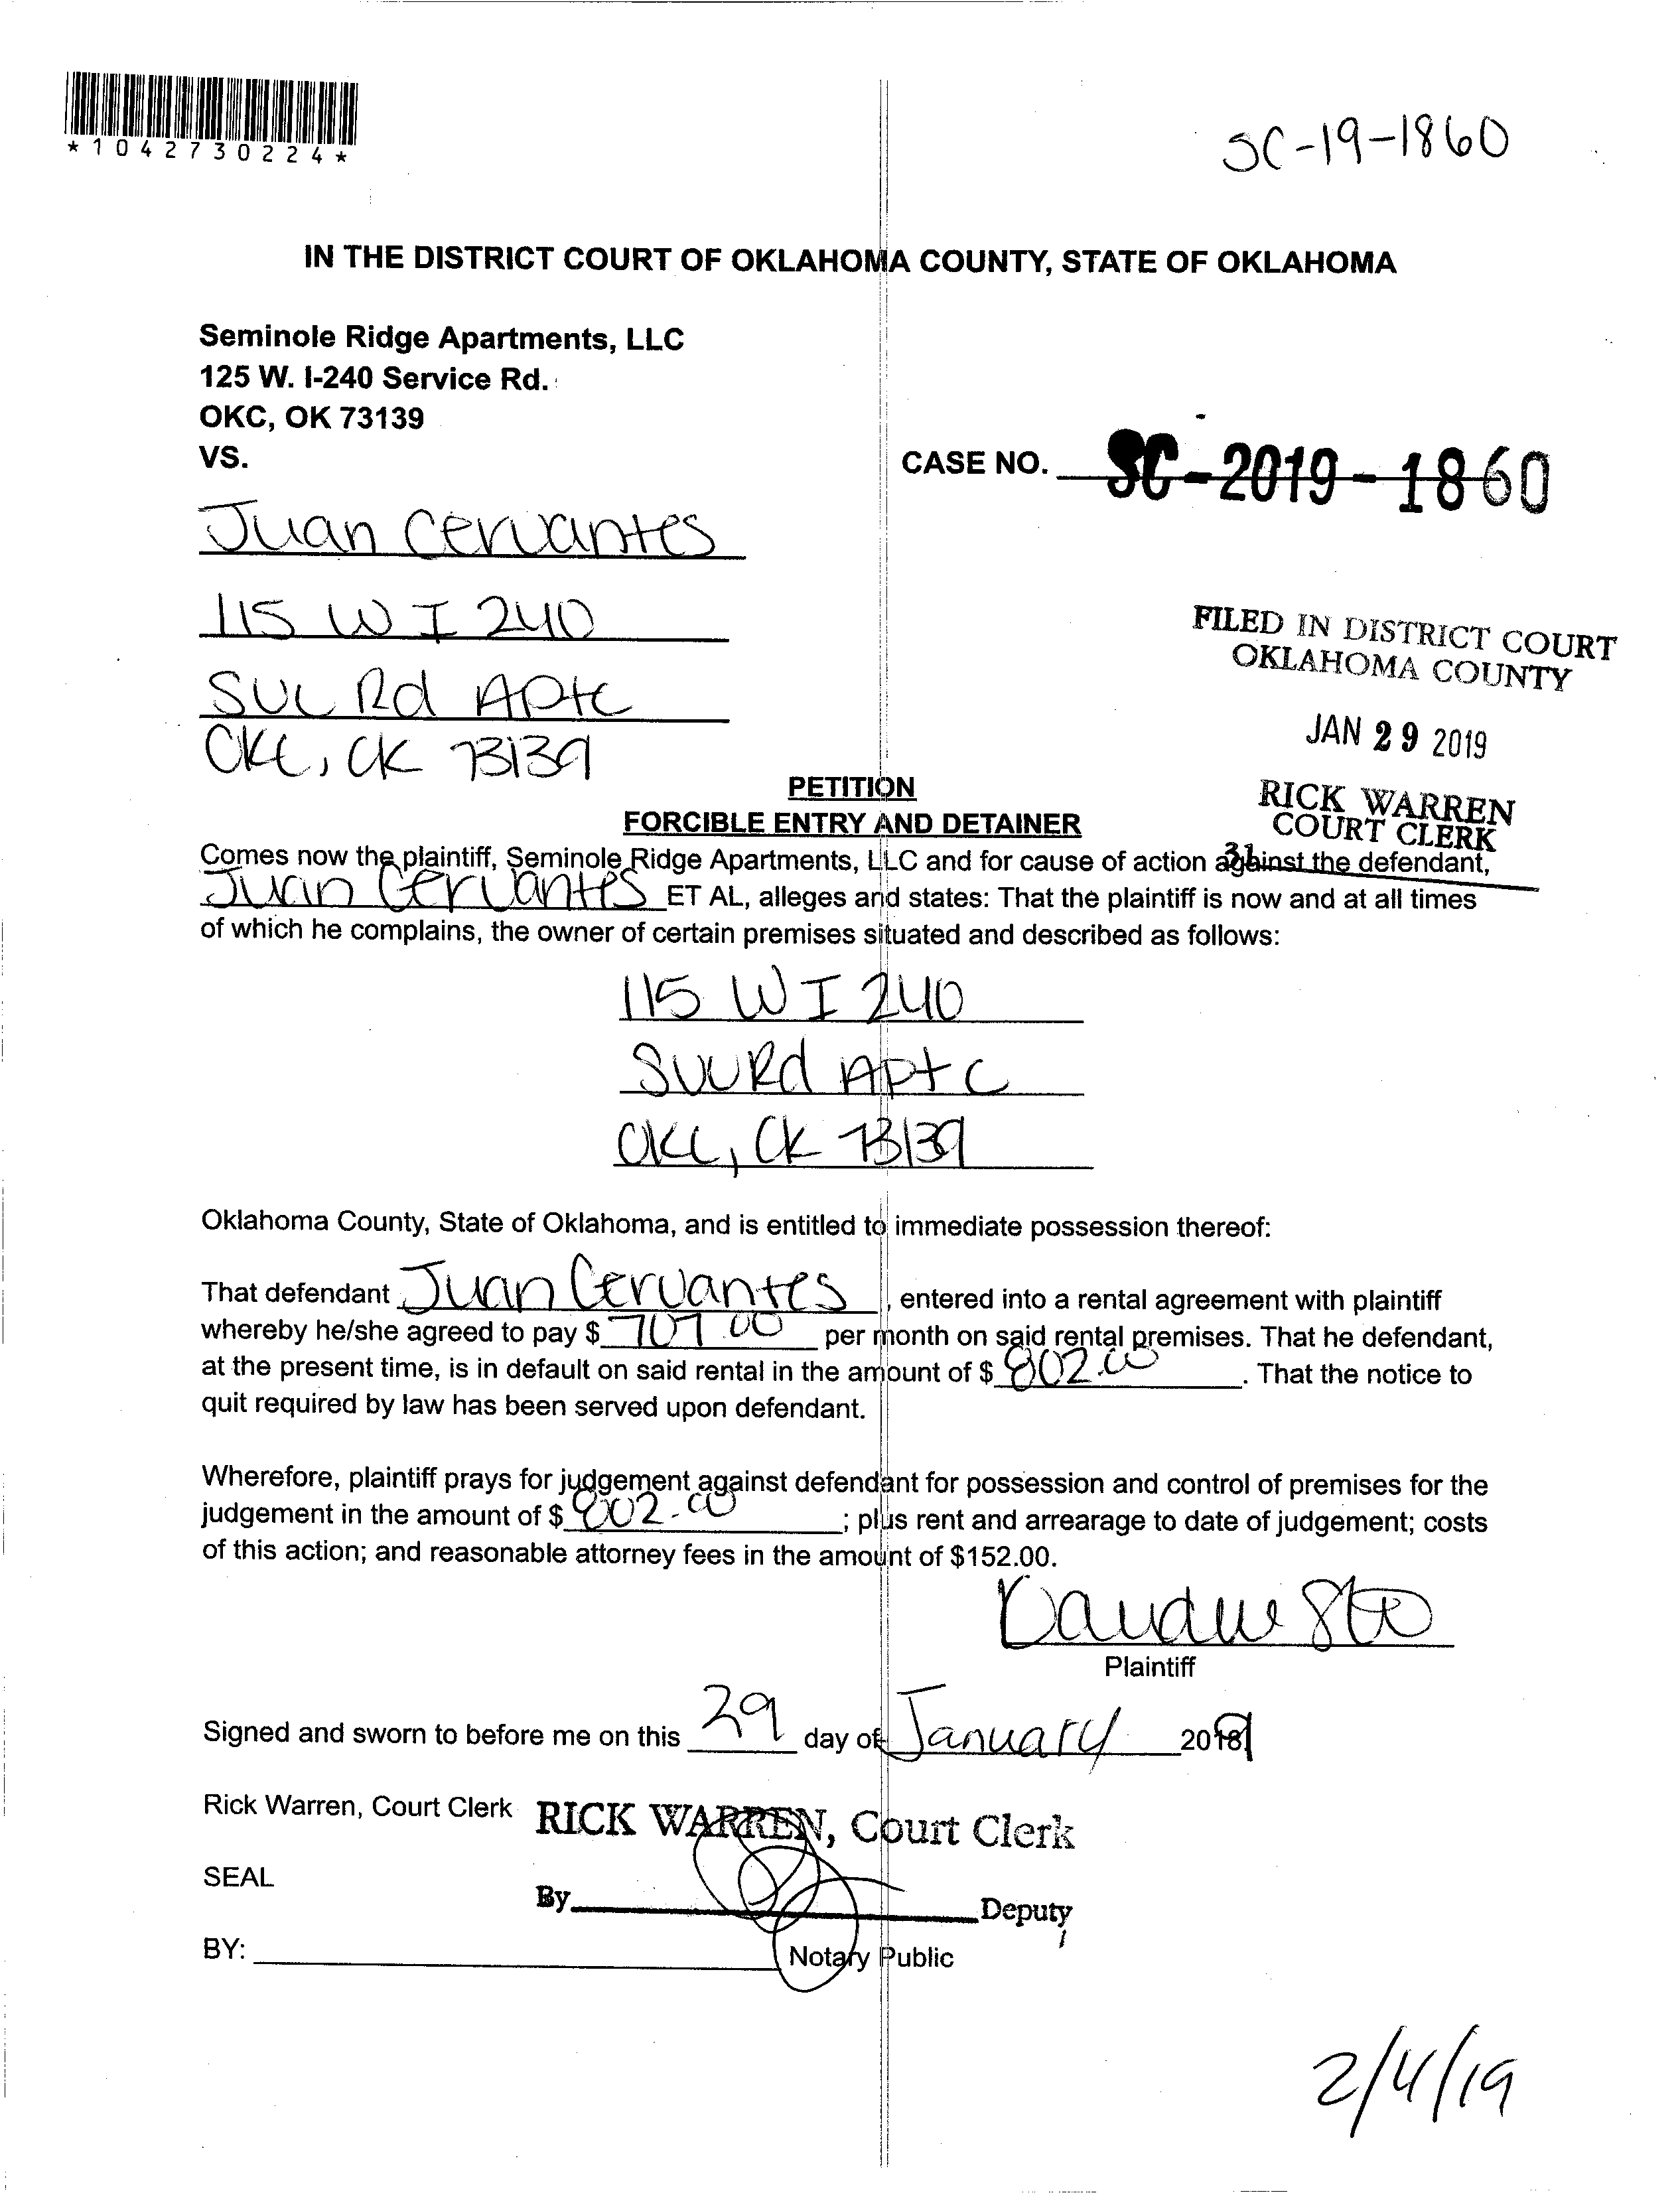 *1042730224*
SC-19-1860
IN THE DISTRICT COURT OF OKLAHOMA COUNTY, STATE OF OKLAHOMA
Seminole Ridge Apartments, LLC
125 W. I-240 Service Rd.
OKC, OK 73139
VS.
CASE NO. SC-2019-1860
Juan Cervantes
115 W I 240
Svc Rd Apt C
OKC, OK 73139
FILED IN DISTRICT COURT
OKLAHOMA COUNTY
JAN 29 2019
RICK WARREN
COURT CLERK
31
PETITION
FORCIBLE ENTRY AND DETAINER
Comes now the plaintiff, Seminole Ridge Apartments, LLC and for cause of action against the defendant,
Juan Cervantes ET AL, alleges and states: That the plaintiff is now and at all times
of which he complains, the owner of certain premises situated and described as follows:
115 W I 240
Svc Rd Apt C
OKC, OK 73139
Oklahoma County, State of Oklahoma, and is entitled to immediate possession thereof:
That defendant Juan Cervantes, entered into a rental agreement with plaintiff
whereby he/she agreed to pay $ 707.00 per month on said rental premises. That he defendant,
at the present time, is in default on said rental in the amount of $ 802.00. That the notice to
quit required by law has been served upon defendant.
Wherefore, plaintiff prays for judgement against defendant for possession and control of premises for the
judgement in the amount of $ 802.00; plus rent and arrearage to date of judgement; costs
of this action; and reasonable attorney fees in the amount of $152.00.
Plaintiff
Signed and sworn to before me on this 29 day of January 2019
Rick Warren, Court Clerk RICK WARREN, Court Clerk
SEAL
By Deputy
BY: Notary Public
2/4/19